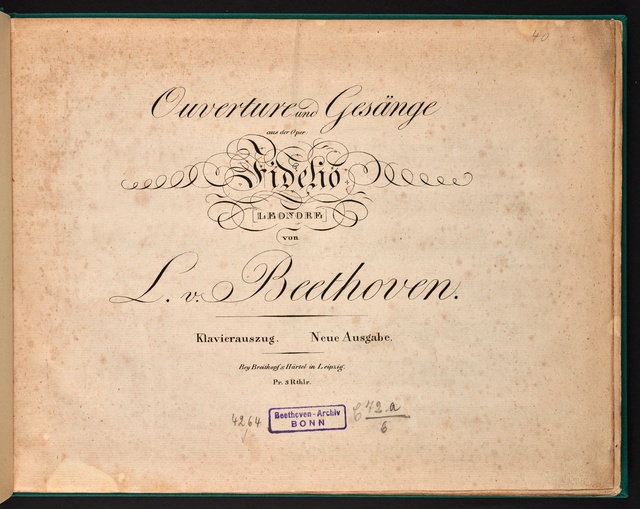 40
Ouverture und Gesänge
aus der Oper:
Fidelio:
[LEONORE]
von
L. v. Beethoven.
Klavierauszug. Neue Ausgabe.
Bey Breitkopf & Härtel in Leipzig.
Pr. 3 Rthlr.
4264
Beethoven-Archiv
BONN
C 72-a
6